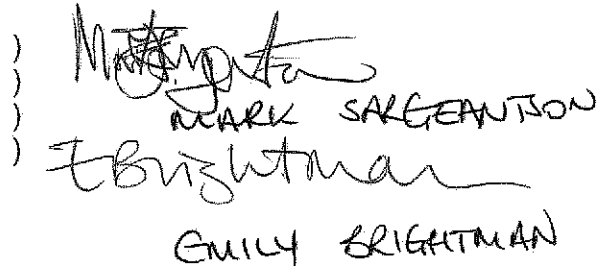 )
)
) MARK SARGEANTSON
) EBrightman
EMILY BRIGHTMAN